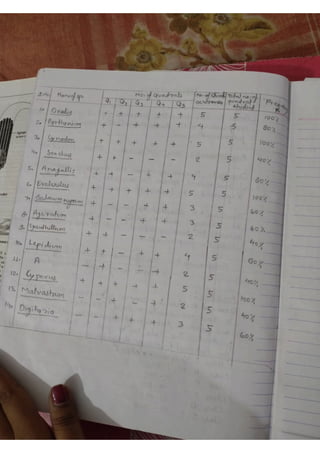 S.No. Name of sp. No. of Quadrats No. of Quad. occurrence Total no. of quadrat studied
Q1 Q2 Q3 Q4 Q5
1. Oxalis + + + + + 5 5 100%
2. Parthenium + - + + + 4 5 80%
3. Cynodon + + + + + 5 5 100%
4. Sonchus + + - - - 2 5 40%
5. Anagallis + + - + + 4 5 80%
6. + + + + + 5 5 100%
7. + - - + + 3 5 60%
8. Ageratum + - - + + 3 5 60%
9. + + - - - 2 5 40%
10. Lepidium + + - + + 4 5 80%
11. A + - - + - 2 5 40%
12. Cyperus + + + + + 5 5 100%
13. Malvastrum - - + - + 2 5 40%
14. Digitaria - - + + + 3 5 60%